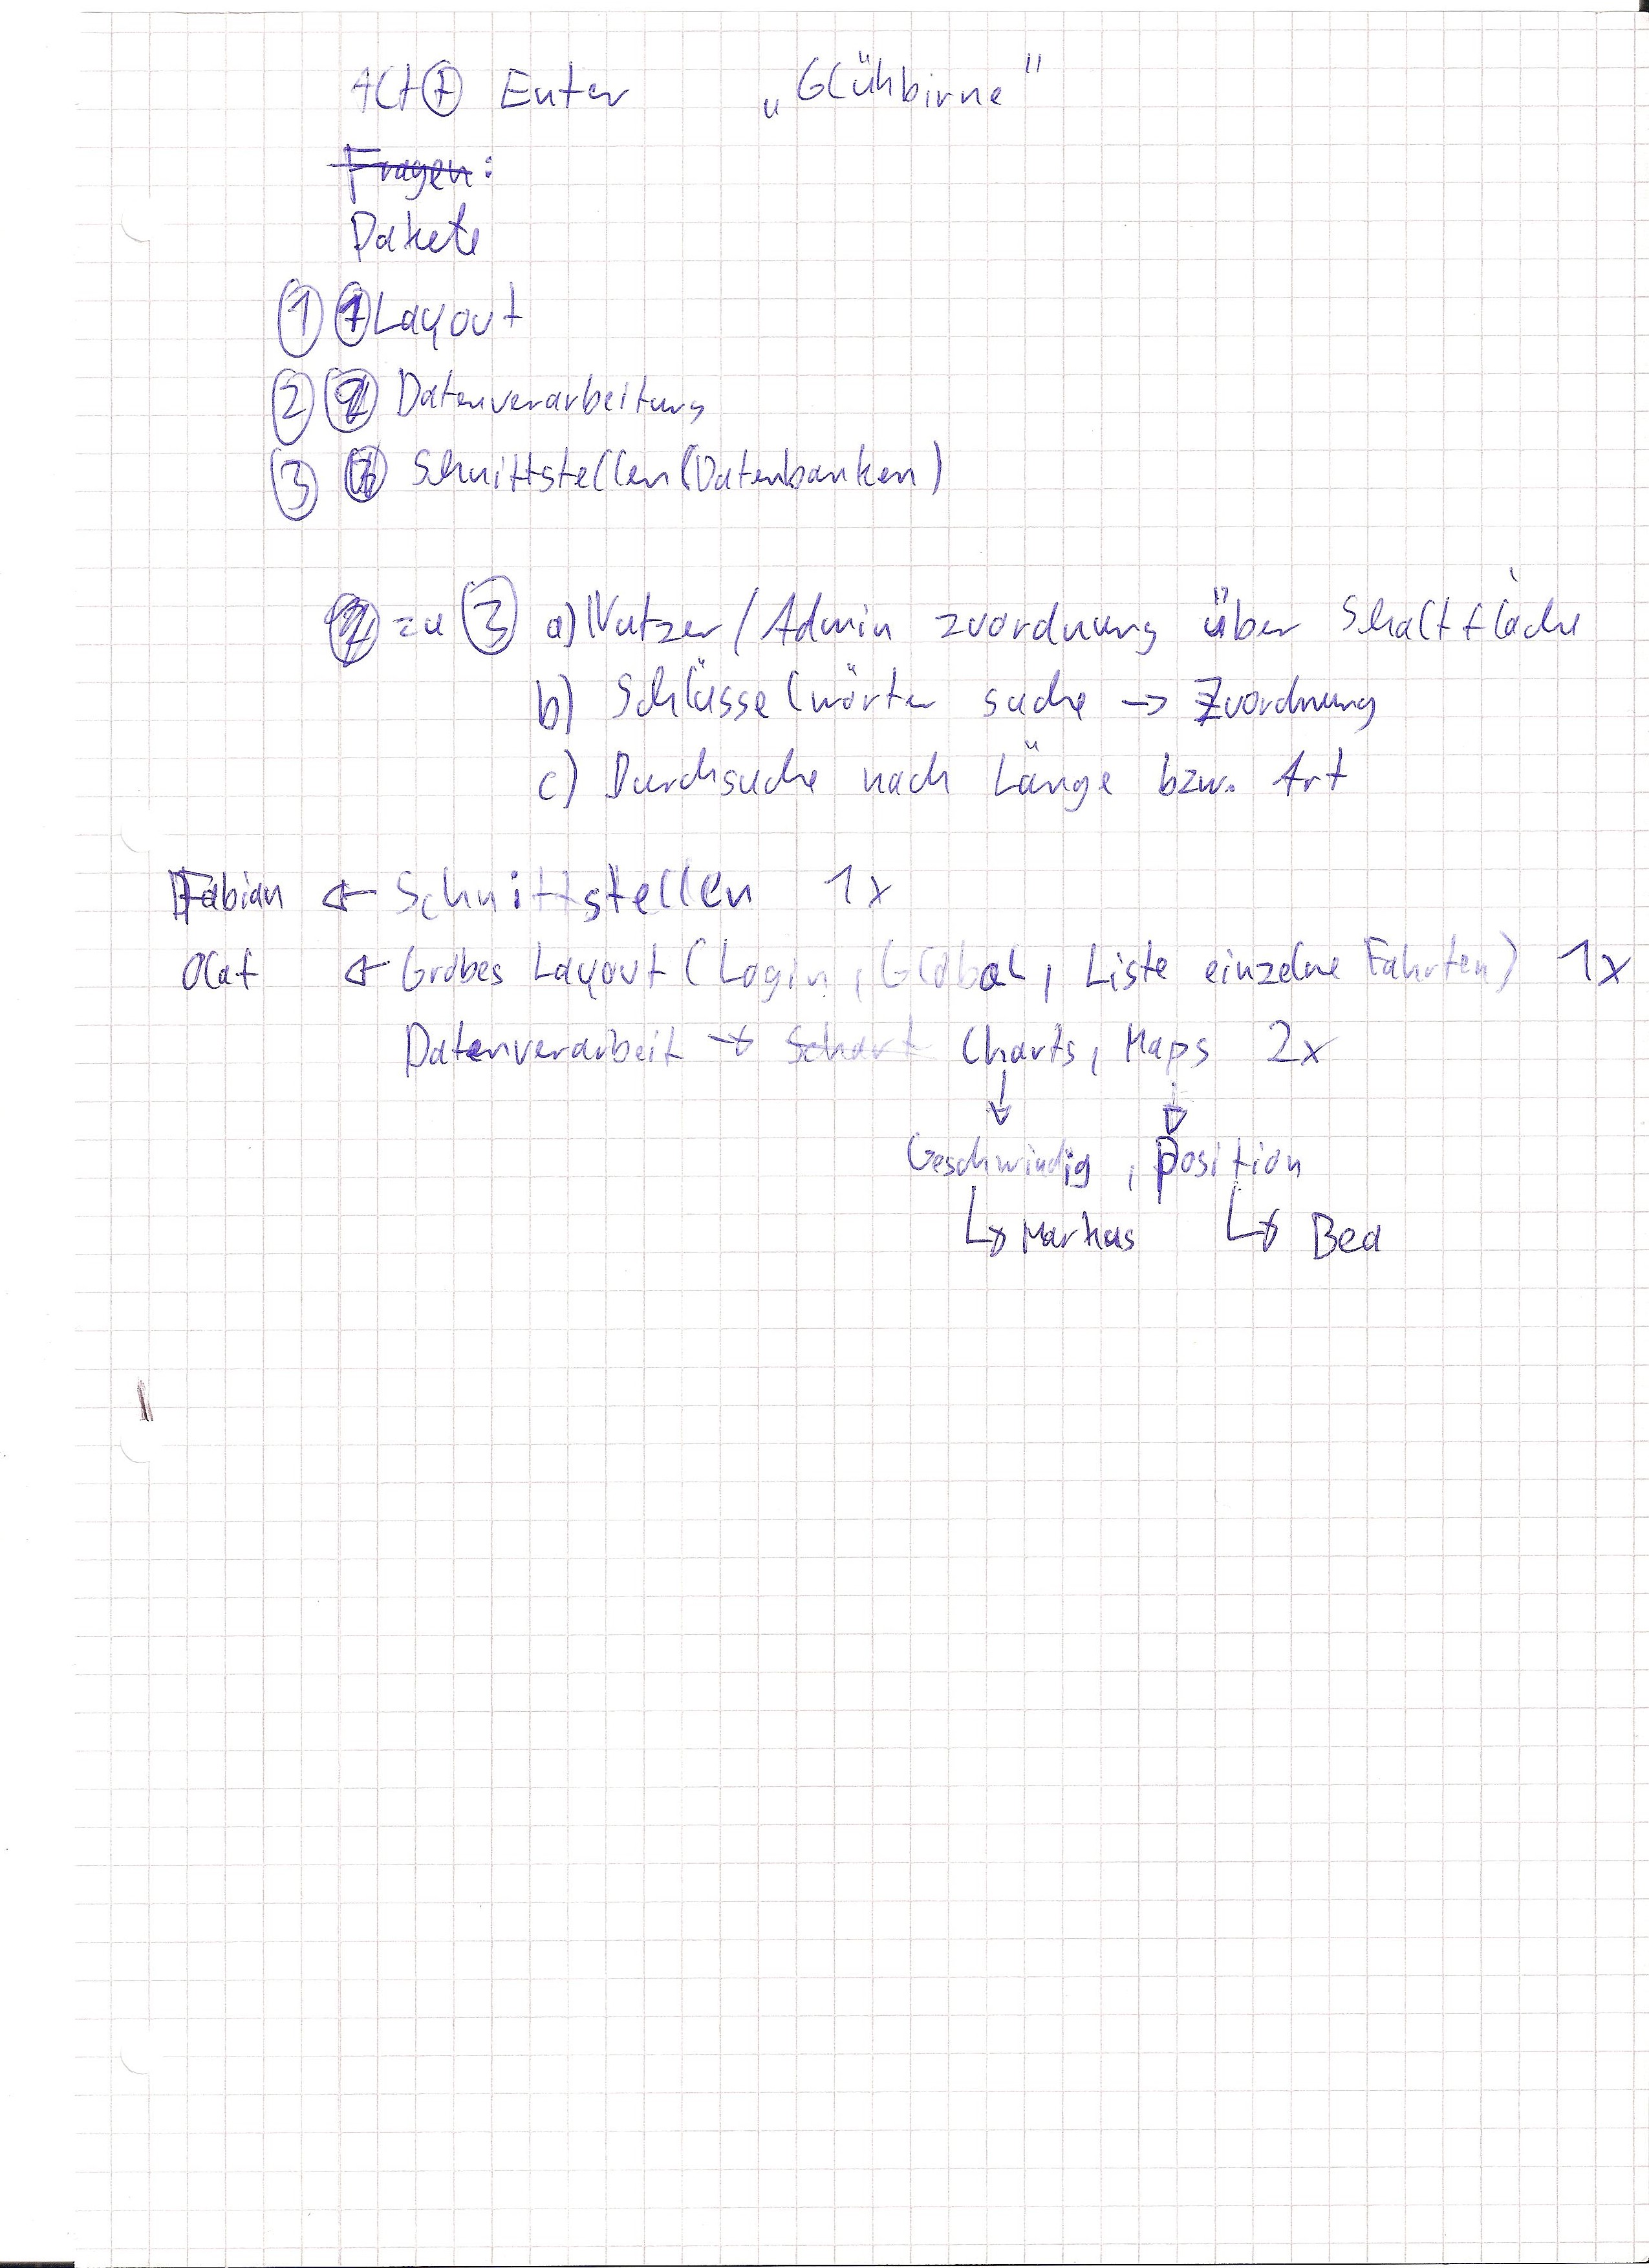 Alt + Enter „Glühbirne"
Fragen:
Pakete
① ① Layout
② Datenverarbeitung
③ Schnittstellen (Datenbanken)
zu ③ a) Nutzer / Admin zuordnung über Schaltfläche
b) Schlüsselwörter suche → Zuordnung
c) Durchsuche nach Länge bzw. Art
Fabian ← Schnittstellen 1x
Olaf ← Grobes Layout (Login, Global, Liste einzelne Fahrten) 1x
Datenverarbeit → Schart Charts, Maps 2x
↓ ↓
Geschwindig, Position
↳ Markus ↳ Bea